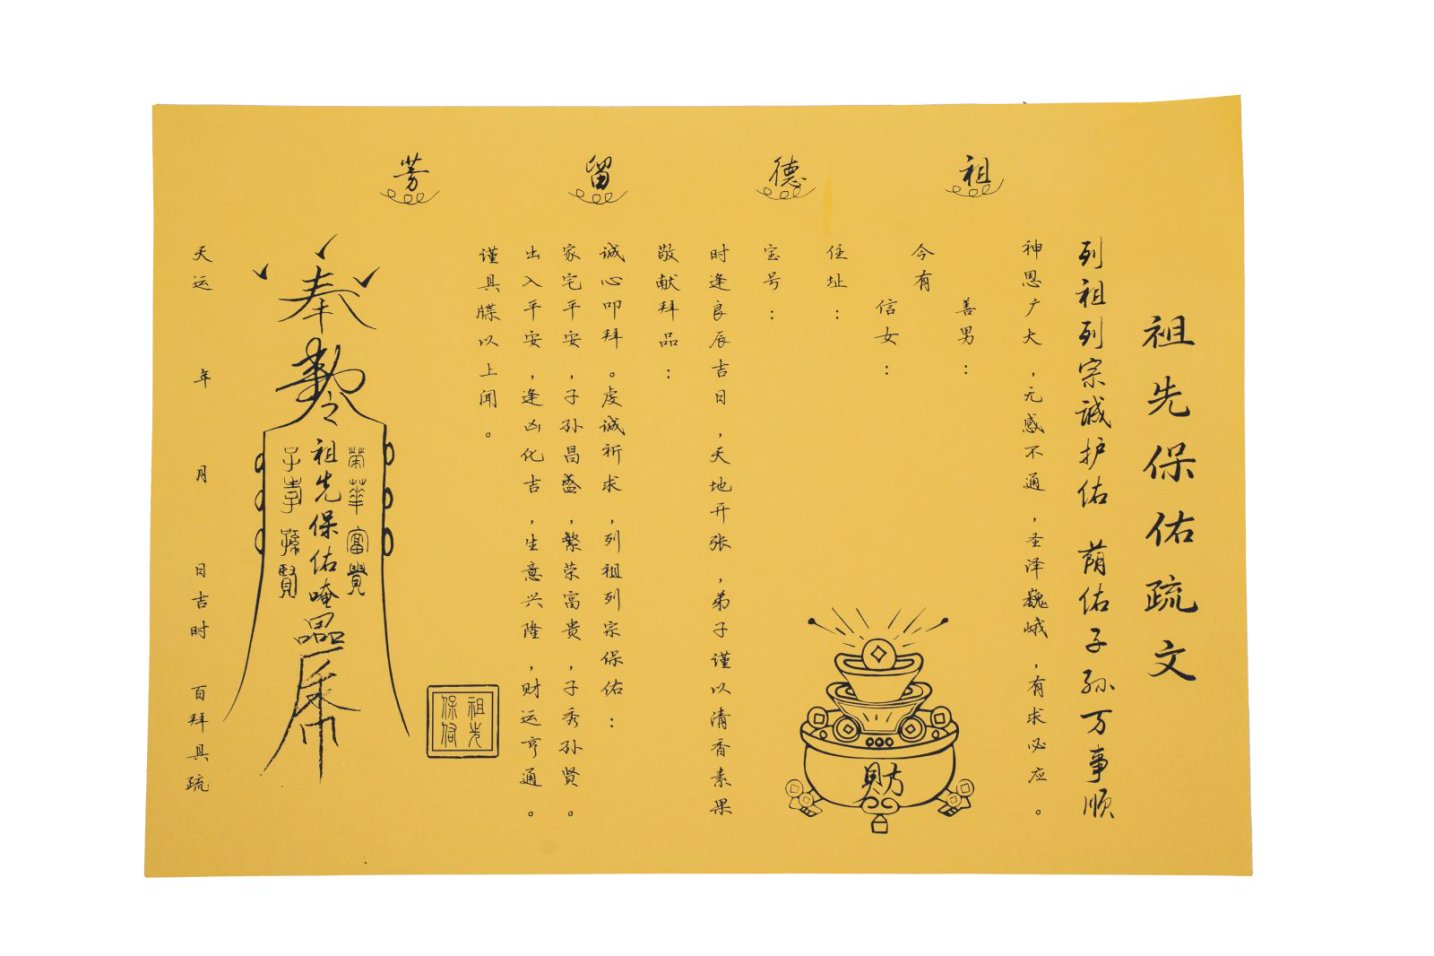 祖德留芳
祖先保佑疏文
列祖列宗诚护佑 荫佑子孙万事顺
神恩广大，无感不通，圣泽巍峨，有求必应。
今有
善男：
信女：
住址：
宝号：
財
时逢良辰吉日，天地开张，弟子谨以清香素果
敬献拜品：
诚心叩拜。虔诚祈求，列祖列宗保佑：
家宅平安，子孙昌盛，繁荣富贵，子秀孙贤。
出入平安，逢凶化吉，生意兴隆，财运亨通。
谨具牒以上闻。
祖先保佑
奉
榮華富貴
祖先保佑唵
子孝孫賢
天运 年 月 日吉时 百拜具疏